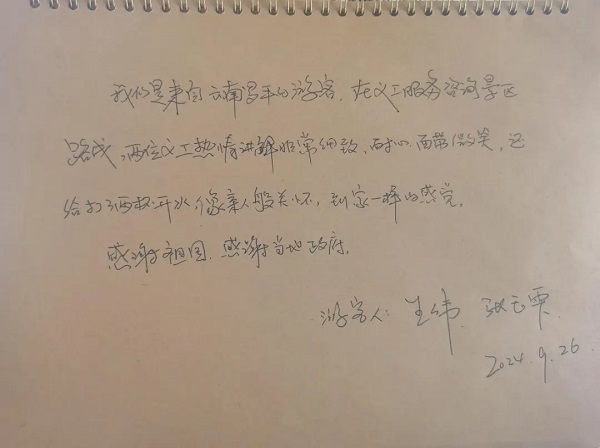 我们是来自云南昌平的游客，在义工服务咨询景区
路线，两位义工热情讲解非常细致、耐心、面带微笑，还
给打了两杯开水，像亲人般关怀，到家一样的感觉。
感谢祖国，感谢当地政府。
游客人：王纬、张
2024.9.26